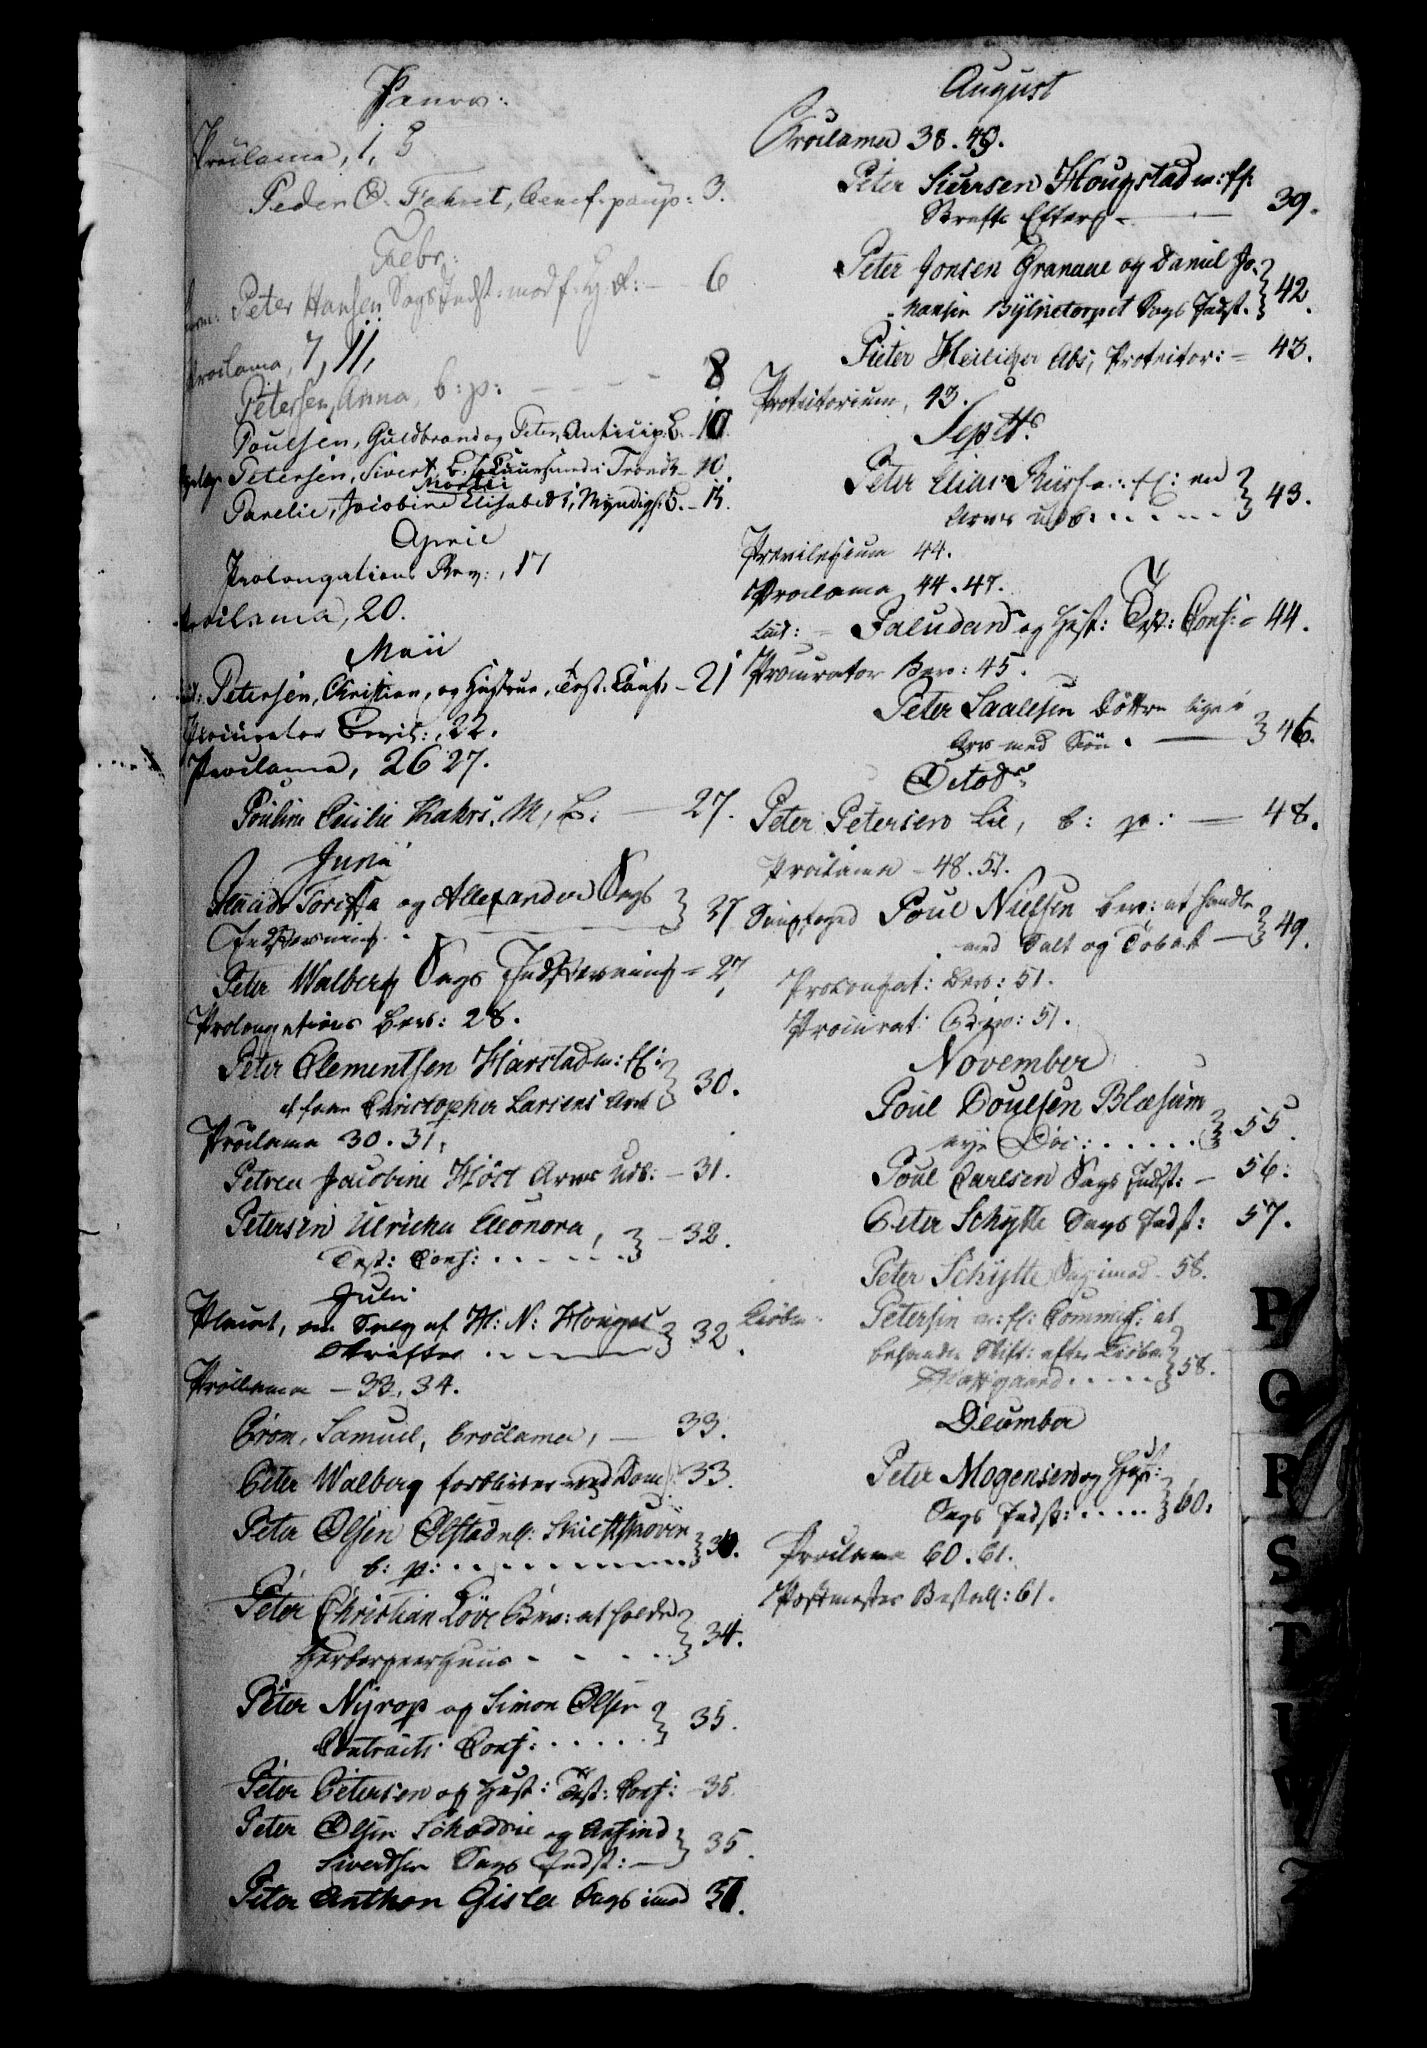 Januar:
Proclama, 1, 5
Peder O. Fehret, Benef. paup: 3.
Febr:
Peter Hansen Sags Indst: mod f. — 6
Proclama, 7, 11,
Petersen, Anna, b: p: - - - - 8
Poulsen, Guldbrand og Peter, Anticip. B. - 10.
Petersen, Sivert, B. i Trondh - 10.
Martii
Parelie, Jacobine Elisabeth, Myndigh: B. - 15.
April
Prolongations Bev:, 17
Proclama, 20.
Maii
Petersen, Christian, og Hustrue, Test: Conf: - 21
Procurator Bevil:, 22.
Proclama, 26 27.
Pouline Cecilie Kahrs, M, B: — 27.
Junii
Placids Torissa og Allexander Sags
Indstevning. - 27
Peter Walberg Sags Indstevning = 27
Prolongations Bev: 28.
Peter Clementsen Harstad m: fl:
at faae Christopher Larsens Arv 30.
Proclama 30. 31.
Petrea Jacobine Höst Arvs Udb: - 31.
Petersen Ulricha Eleonora,
Test: Conf: . . . . . . - 32.
Juli
Placat, om Salg af H: N: Houges
Skrifter . . — 32.
Proclama — 33. 34.
Prom, Samuel, Proclama, — 33.
Peter Walberg forbliver ved Dom: 33.
Peter Olsen Ølstad
b: p: . . . . . . 34.
Peter Christian Löve Bev: at holde
Herbergeerhuus - - - . . 34.
Peter Nyrop og Simon Olsen
Contracts Conf: . . . . . 35.
Peter Petersen og Hust: Test: Conf: - 35.
Peter Olsen og Arfind
Sivertsen Sags Indst: — 35.
Peter Anthon Gisla Sags imod
August
Proclama 38. 49.
Peter Siversen Hougstad m: fl:
Skrift: Efters. — 39.
Peter Jonsen Granaae og Daniel Jo-
hansen Sags Indst. 42.
Peter Abs, Protector: = 43.
Protectorium, 43.
Septbr
Peter Elias m: fl: en
Arvs udb. . . . . . 43.
Previlegium 44.
Proclama 44. 47.
Paludan og Hust: Test: Conf: = 44.
Procurator Bev: 45.
Peter Saalesen Döttre lige i
Arv med Sön. — 46.
Octobr
Peter Petersen Lie, b: p: — 48.
Proclama — 48. 51.
Poul Nielsen Bev: at handle
med Salt og Tobak — 49.
Prolongat: Bev: 51.
Procurat: Bev: 51.
November
Poul Poulsen Blæsum
nye . . . . . 55.
Poul Carlsen Sags Indst: — 56:
Peter Schytte Sags Indst: 57.
Peter Schytte Sag imod - 58.
Petersen m: fl: Commiss: at
behandle Skift: efter Kiöbm
. . . . . 58.
December
Peter Mogensen og Hust:
Sags Indst: . . . . . 60.
Proclama 60. 61.
Postmester Bestall: 61.
P
Q
R
S
T